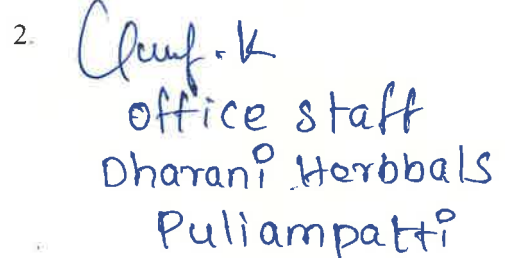 2.
office staff
Dharani Herbbals
Puliampatti